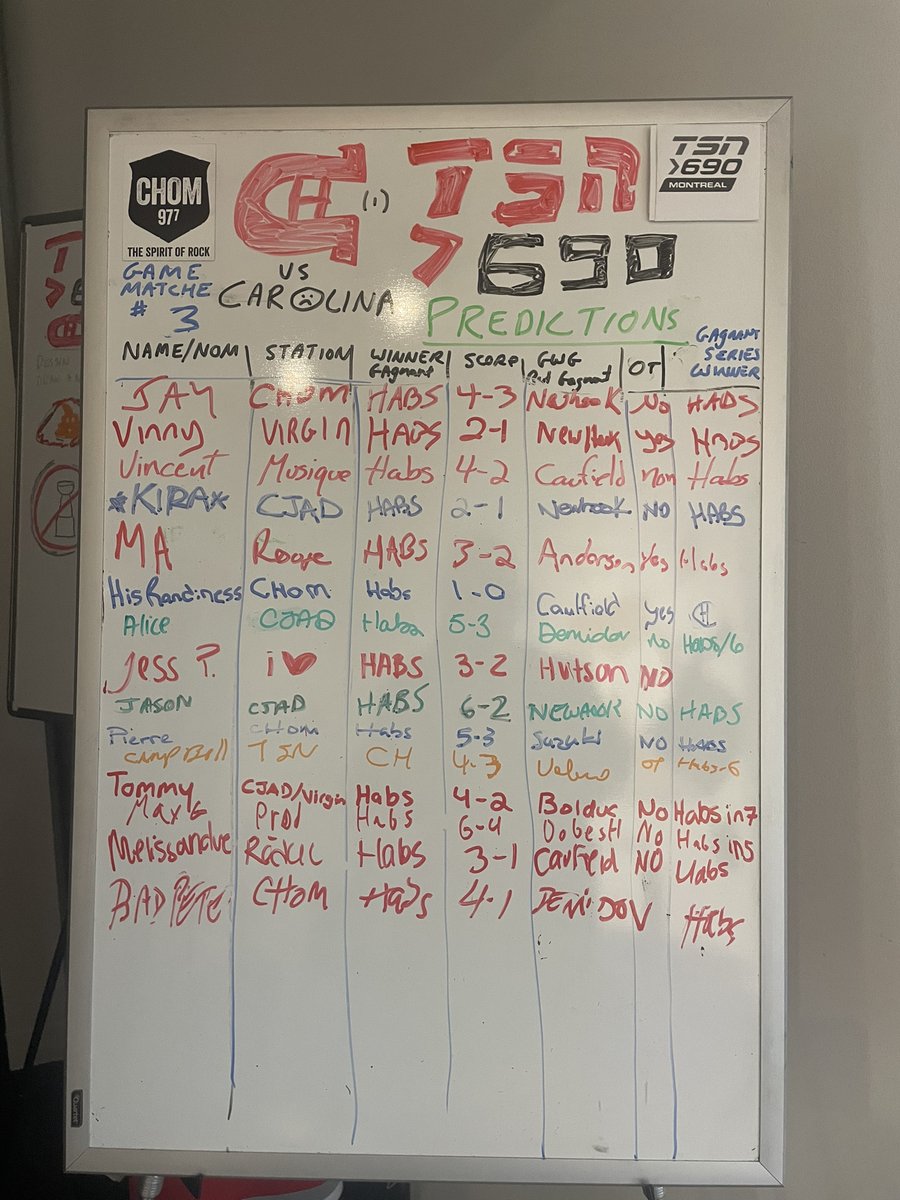 CHOM
97⁷
THE SPIRIT OF ROCK
CH (1) TSN
>690
TSN
>690
MONTREAL
GAME
MATCHE
# 3
VS
CAROLINA
PREDICTIONS
NAME/NOM STATION WINNER Gagnant SCORE GWG But Gagnant OT GAGNANT SERIES WINNER
JAY CHOM HABS 4-3 Newhook No HABS
Vinny VIRGIN HABS 2-1 New/Hook Yes HABS
Vincent Musique Habs 4-2 Caufield non Habs
*KIRA* CJAD HABS 2-1 Newhook NO HABS
MA Rouge HABS 3-2 Anderson Yes Habs
His Randiness CHOM Habs 1-0 Caulfield yes CH
Alice CJAD Habs 5-3 Demidov no HABS/6
Jess ? i♥ HABS 3-2 Hutson NO
JASON CJAD HABS 6-2 NEWHOOK NO HABS
Pierre CHOM Habs 5-3 Suzuki NO HABS
CAMPBELL TSN CH 4-3 OT Habs-6
Tommy CJAD/Virgin Habs 4-2 Bolduc No Habs in 7
Max G Prod Habs 6-4 Dobesh No Habs in 5
Melissandre Habs 3-1 Caufield NO Habs
BAD PETE CHOM Habs 4-1 DEMIDOV Habs
Quartet